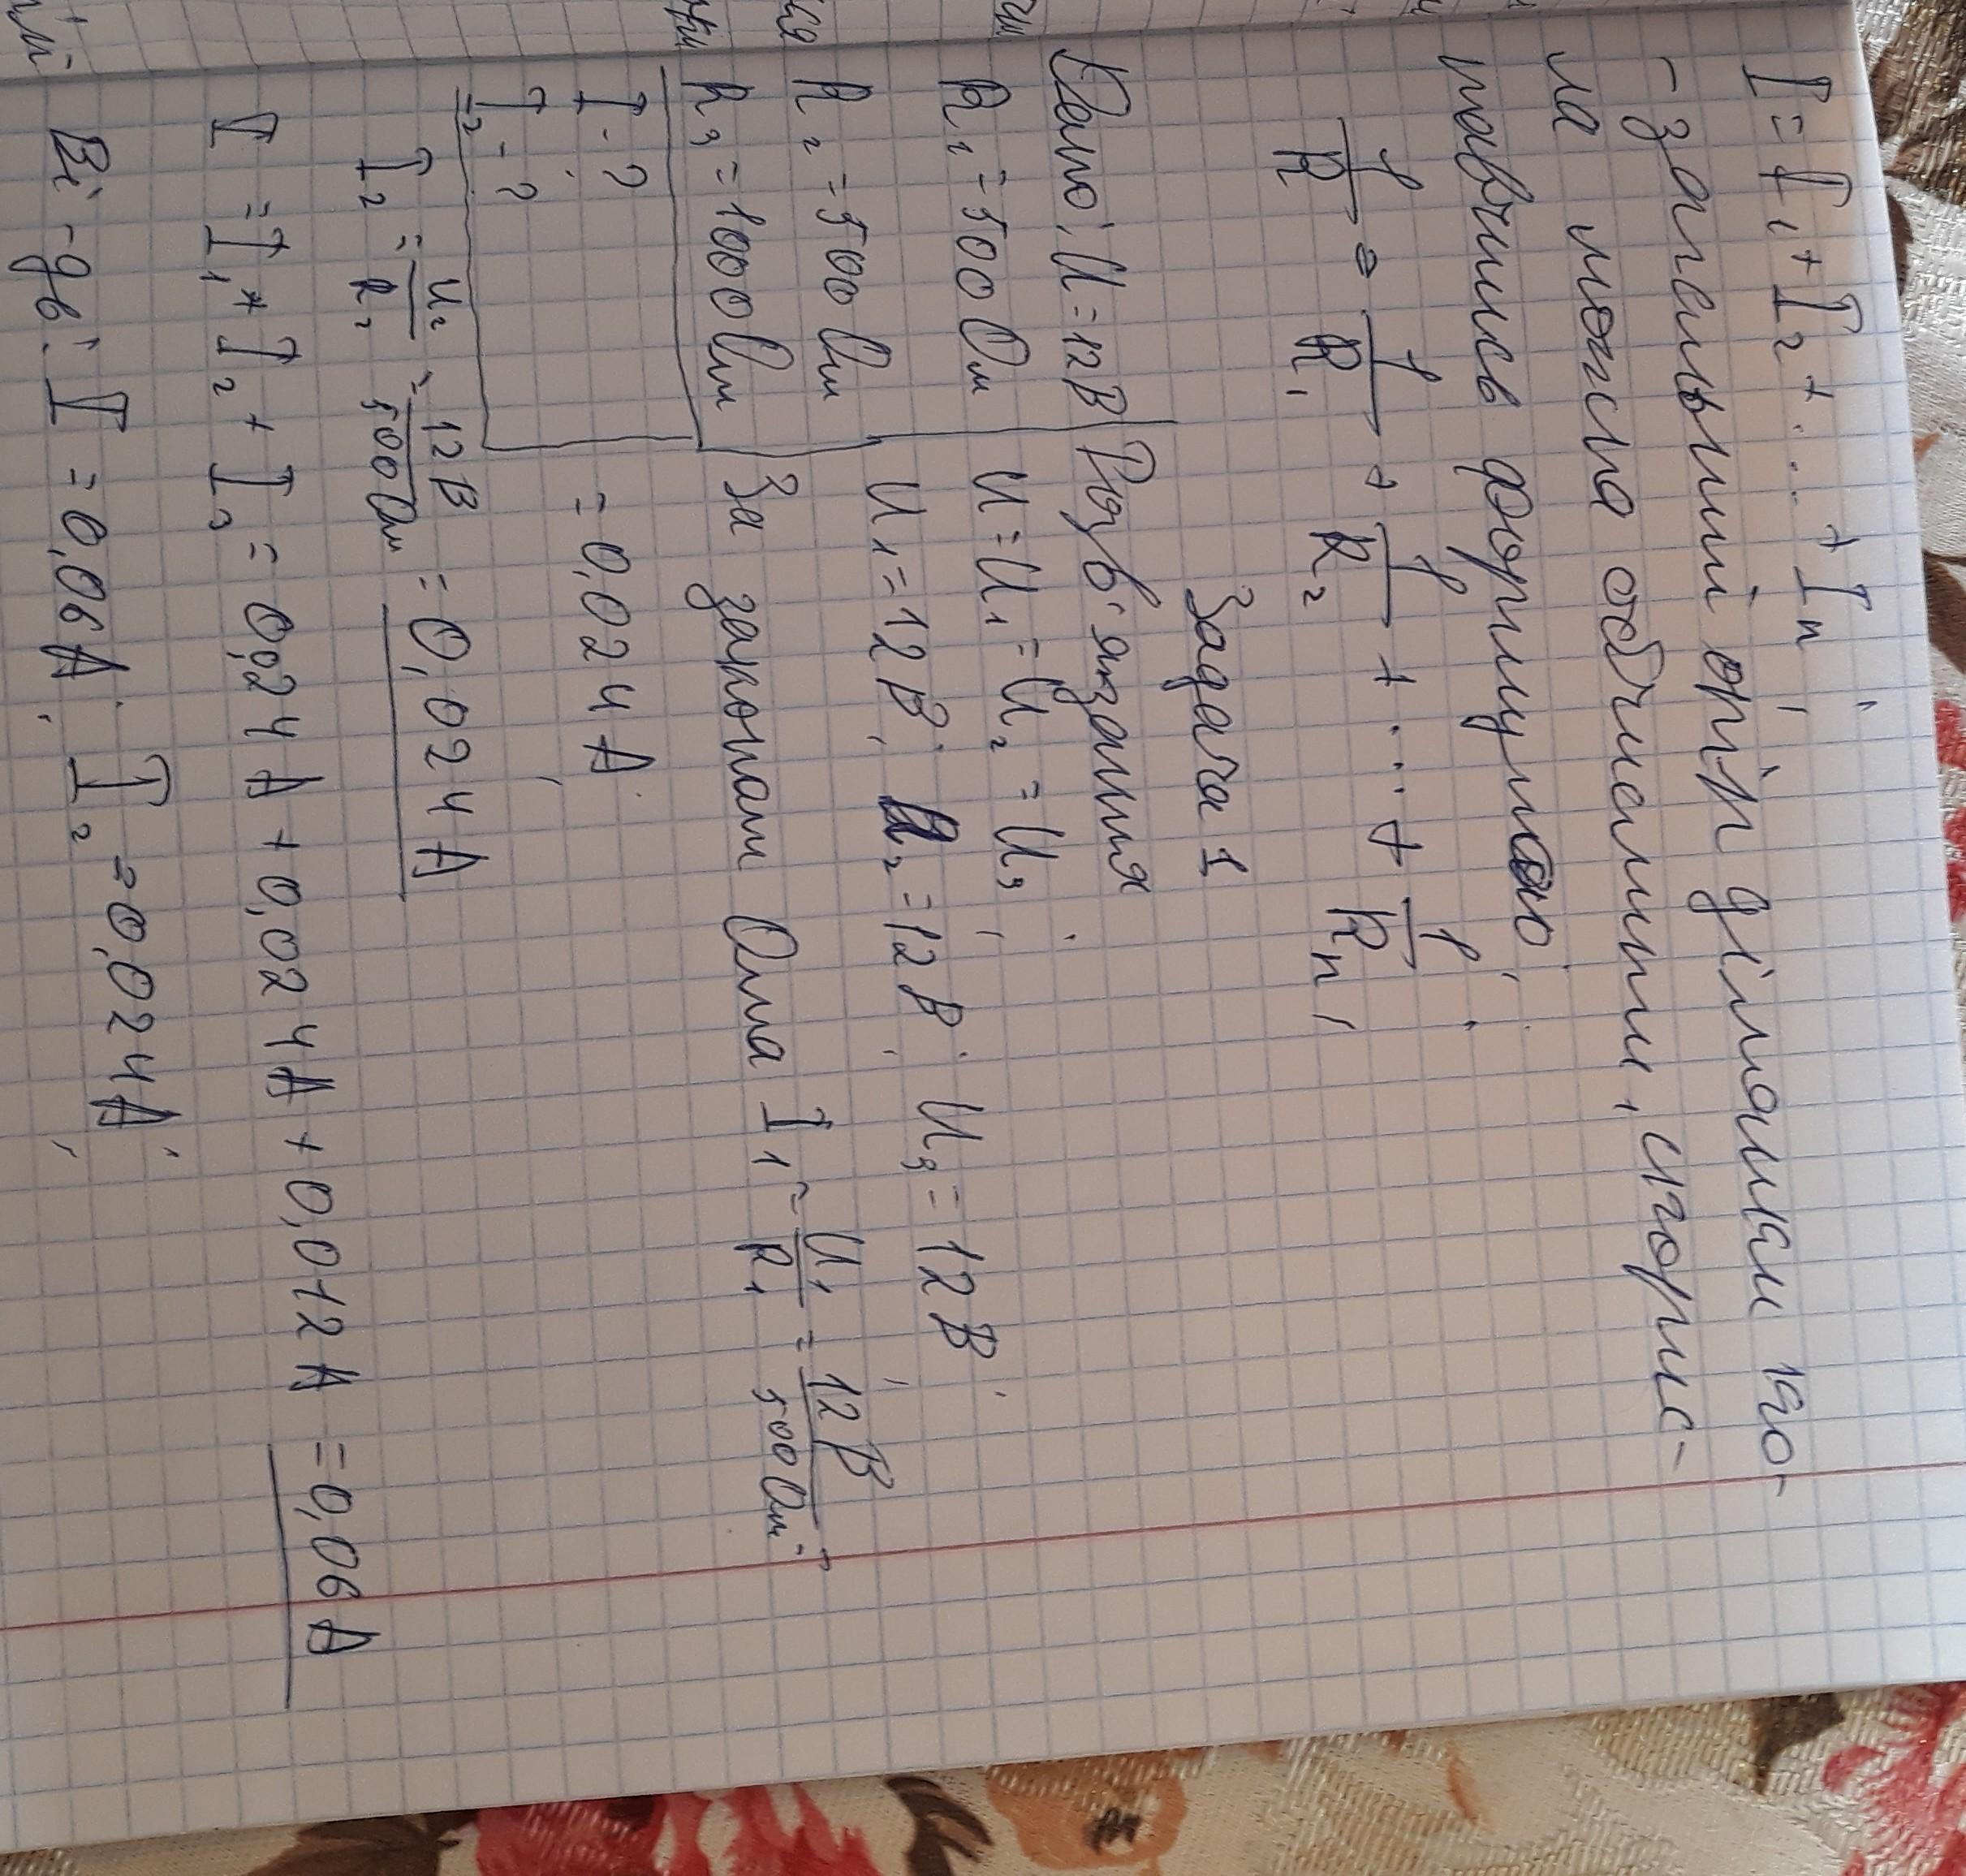 I = I₁ + I₂ + ... + Iₙ;
- загальний опір ділянки ко-
ла можна обчислити, скорис-
тавшись формулою:
1/R = 1/R₁ + 1/R₂ + ... + 1/Rₙ;
Задача 1
Дано: U = 12 В Розв'язання
R₁ = 500 Ом U = U₁ = U₂ = U₃;
R₂ = 500 Ом U₁ = 12 В; U₂ = 12 В; U₃ = 12 В;
R₃ = 1000 Ом За законом Ома I₁ = U₁/R₁ = 12 В/500 Ом =
I - ? = 0,024 А;
I₂ - ?
I₂ = U₂/R₂ = 12 В/500 Ом = 0,024 А
I = I₁ + I₂ + I₃ = 0,024 А + 0,024 А + 0,012 А = 0,06 А
Ві-дь: I = 0,06 А; I₂ = 0,024 А;